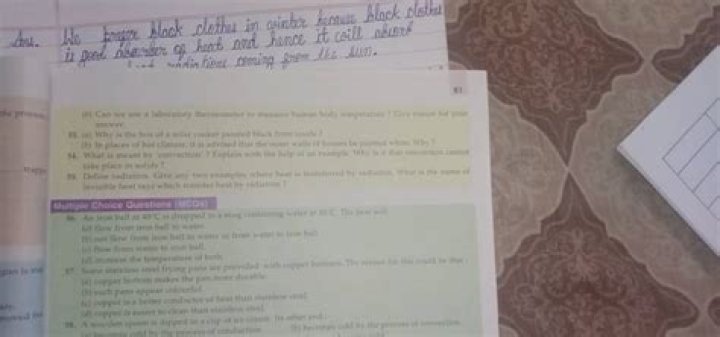 Ans. We prefer black clothes in winter because black clothes
is good absorber of heat and hence it will absorb
heat radiations coming from the sun.
81
(b) Can we use a laboratory thermometer to measure human body temperature ? Give reason for your
answer.
(a) Why is the box of a solar cooker painted black from inside ?
(b) In places of hot climate, it is advised that the outer walls of houses be painted white. Why ?
What is meant by 'convection' ? Explain with the help of an example. Why is it that convection cannot
take place in solids ?
Define radiation. Give any two examples where heat is transferred by radiation. What is the name of
invisible heat rays which transfer heat by radiation ?
Multiple Choice Questions (MCQs)
An iron ball at 40°C is dropped in a mug containing water at 40°C. The heat will
(a) flow from iron ball to water.
(b) not flow from iron ball to water or from water to iron ball.
(c) flow from water to iron ball.
(d) increase the temperature of both.
Some stainless steel frying pans are provided with copper bottoms. The reason for this could be that :
(a) copper bottom makes the pan more durable.
(b) such pans appear colourful.
(c) copper is a better conductor of heat than stainless steel.
(d) copper is easier to clean than stainless steel.
A wooden spoon is dipped in a cup of ice-cream. Its other end :
(a) becomes cold by the process of conduction. (b) becomes cold by the process of convection.